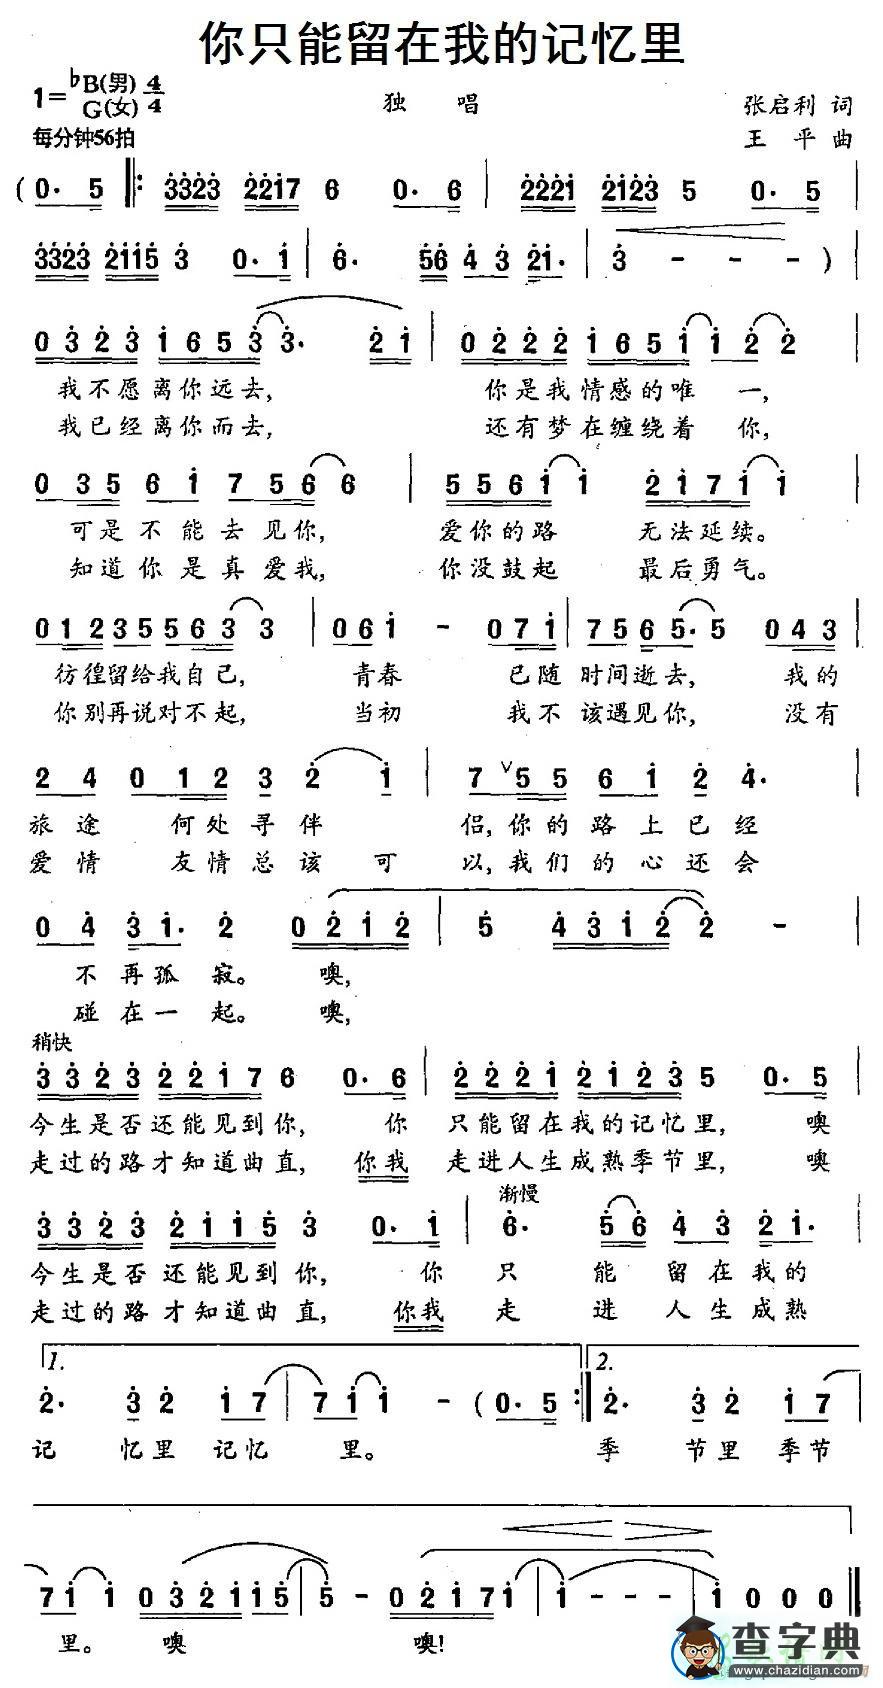 你只能留在我的记忆里
1=♭B(男) 4/4
G(女)
独 唱
张启利 词
每分钟56拍
王 平 曲
(0· 5 ‖: 3323 2217 6 0· 6 | 2221 2123 5 0· 5
3323 2115 3 0· 1 | 6· 56 43 21· | 3 - - - ) |
0323 1653 3· 21 | 0222 1651 12 2 |
我不愿离你远去, 你是我情感的唯一,
我已经离你而去, 还有梦在缠绕着你,
0 35 6 1 7 56 6 | 5561 1 2171 1 |
可是不能去见你, 爱你的路 无法延续。
知道你是真爱我, 你没鼓起 最后勇气。
012 35 563 3 | 061 - 071 | 75 65· 5 043 |
彷徨留给我自己, 青春 已随时间逝去, 我的
你别再说对不起, 当初 我不该遇见你, 没有
2 4 0 12 3 2 1 | 7 ∨55 6 1 2 4· |
旅途 何处寻伴 侣,你的路上已经
爱情 友情总该可 以,我们的心还会
0 4 31· 2 0212 | 5 4312 2 - |
不再孤寂。噢,
碰在一起。噢,
稍快
3323 2217 6 0· 6 | 2221 2123 5 0· 5 |
今生是否还能见到你, 你 只能留在我的记忆里, 噢
走过的路才知道曲直, 你我 走进人生成熟季节里, 噢
渐慢
3323 2115 3 0· 1 | 6· 56 43 21· |
今生是否还能见到你, 你 只 能 留在我的
走过的路才知道曲直, 你我 走 进 人生成熟
1. 2.
2· 3 2 1 7 | 7 1 1 - (0· 5 :‖ 2· 3 2 1 7 |
记 忆里 记忆 里。 季 节里季节
7 1 1 0321 15 | 5 - 0217 1 | 1 - - - | 1 0 0 0 ‖
里。 噢 噢!
查字典
www.chazidian.com